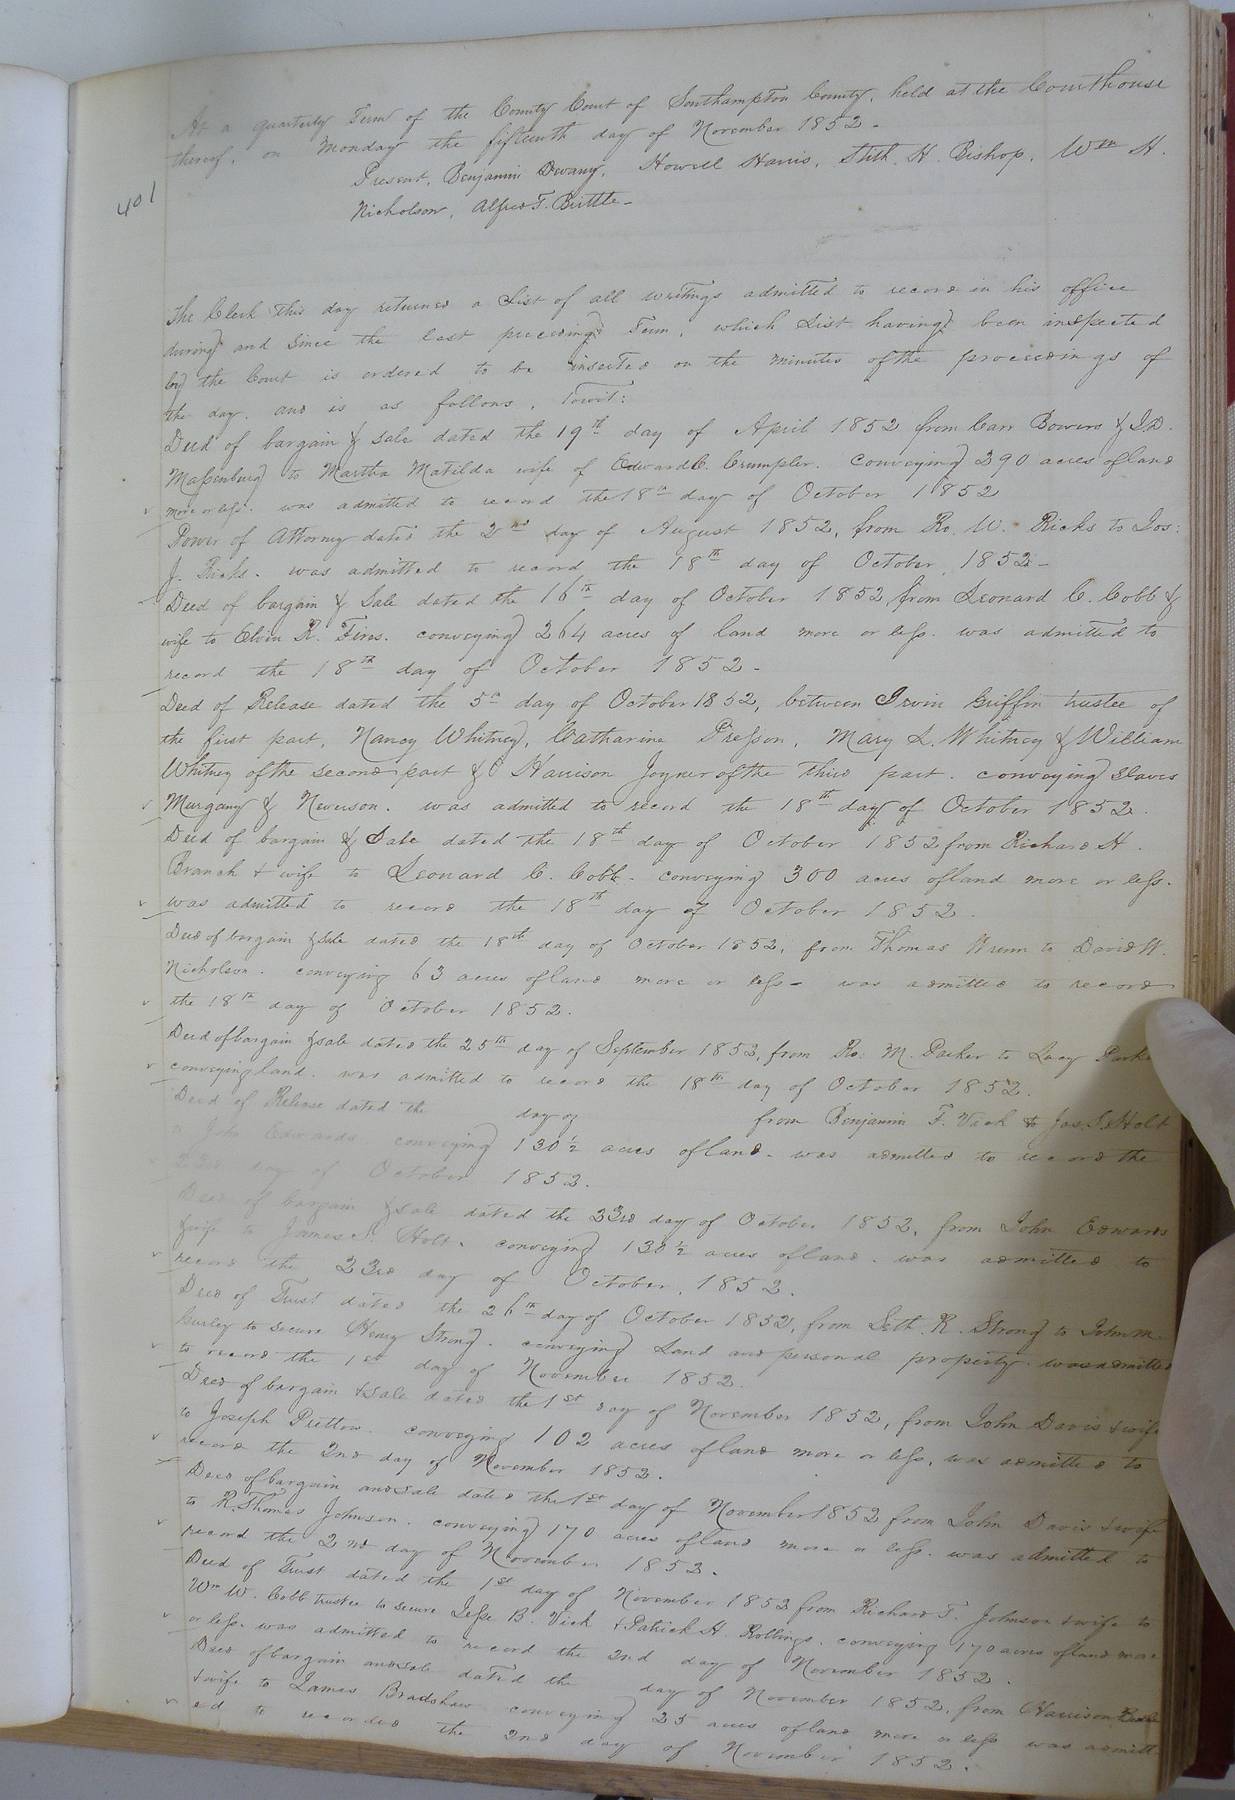 At a quarterly Term of the County Court of Southampton County, held at the Courthouse
thereof, on Monday the fifteenth day of November 1852 -
Present, Benjamin Devany, Howell Harris, Stith H. Bishop, Wm H.
Nicholson, Alfred T. Brittle -
401
The Clerk this day returned a List of all writings admitted to record in his office
during and since the last preceeding Term, which List having been inspected
by the Court is ordered to be inserted on the minutes of the proceedings of
the day, and is as follows, Towit:
Deed of bargain & sale dated the 19th day of April 1852 from Carr Bowers & J.D.
Massenburg to Martha Matilda wife of Edward C. Crumpler. conveying 290 acres of land
more or less. was admitted to record the 18th day of October 1852
Power of Attorney dated the 2nd day of August 1852, from Ro. W. Ricks to Jos:
J. Ricks. was admitted to record the 18th day of October, 1852 -
Deed of bargain & Sale dated the 16th day of October 1852, from Leonard C. Cobb &
wife to Elvin R. conveying 264 acres of land more or less. was admitted to
record the 18th day of October 1852 -
Deed of Release dated the 5th day of October 1852, between Irvin Griffin trustee of
the first part, Nancy Whitney, Catharine Presson, Mary L. Whitney & William
Whitney of the second part & Harrison Joyner of the third part. conveying slaves
Murgany & Neverson. was admitted to record the 18th day of October 1852.
Deed of bargain & Sale dated the 18th day of October 1852 from Richard H.
Branch & wife to Leonard C. Cobb - conveying 300 acres of land more or less.
was admitted to record the 18th day of October 1852.
Deed of bargain & sale dated the 18th day of October 1852, from Thomas Wrenn to David W.
Nicholson. conveying 63 acres of land more or less - was admitted to record
the 18th day of October 1852.
Deed of bargain & sale dated the 25th day of September 1852, from Ro: M. Parker to Lucy Parke
conveying land. was admitted to record the 18th day of October 1852.
Deed of Release dated the day of from Benjamin F. Vick & Jas. S. Holt
John Edwards. conveying 130½ acres of land. was admitted to record the
23rd day of October 1852.
Deed of bargain & sale dated the 23rd day of October 1852, from John Edwards
& wife to James S. Holt. conveying 130½ acres of land. was admitted to
record the 23rd day of October, 1852.
Deed of Trust dated the 26th day of October 1852, from Seth. R. Strong to John M.
Gurley to secure Henry Strong. conveying Land and personal property. was admitted
to record the 1st day of November 1852.
Deed of bargain & sale dated the 1st day of November 1852, from John Davis & wife
to Joseph Pretlow. conveying 102 acres of land more or less, was admitted to
record the 2nd day of November 1852.
Deed of bargain and sale dated the 1st day of November 1852 from John Davis & wife
to R. Thomas Johnson. conveying 170 acres of land more or less. was admitted to
record the 2nd day of November 1852.
Deed of Trust dated the 1st day of November 1852 from Richard T. Johnson & wife to
Wm W. Cobb trustee to secure Jesse B. Vick & Patrick H. Rollings. conveying 170 acres of land more
or less. was admitted to record the 2nd day of November 1852.
Deed of bargain and sale dated the day of November 1852, from Harrison
& wife to James Bradshaw conveying 25 acres of land more or less was admitt-
ed to recorded the 2nd day of November 1852.